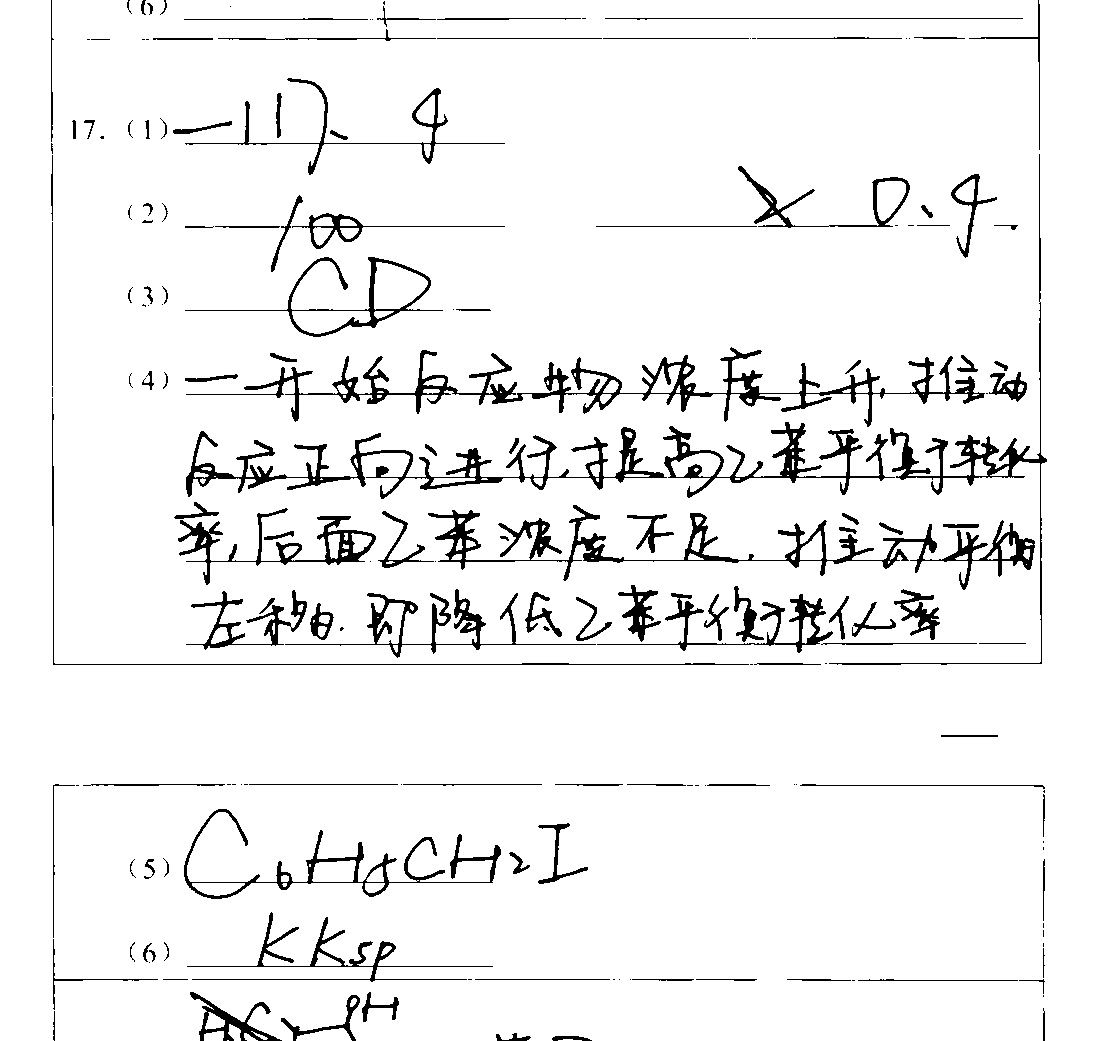 (6)
17. (1) -117.4
(2) 100 0.4.
(3) CD
(4) 一开始反应物浓度上升,推动
反应正向进行,提高乙苯平衡转化
率,后面乙苯浓度不足.推动平衡
左移.即降低乙苯平衡转化率
(5) C6H5CH2I
(6) KKsp